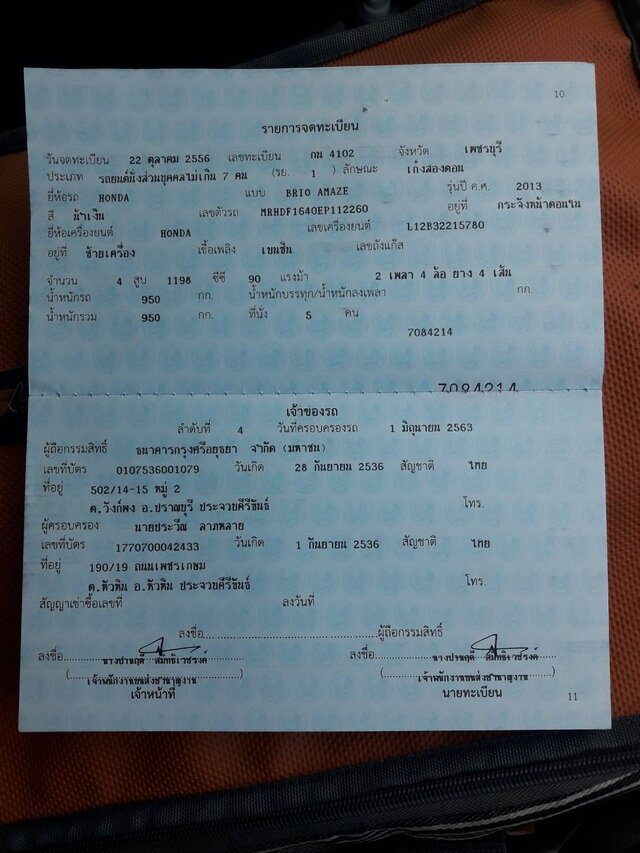 10
รายการจดทะเบียน
วันจดทะเบียน 22 ตุลาคม 2556 เลขทะเบียน กน 4102 จังหวัด เพชรบุรี
ประเภท รถยนต์นั่งส่วนบุคคลไม่เกิน 7 คน (รย. 1 ) ลักษณะ เก๋งสองตอน
ยี่ห้อรถ HONDA แบบ BRIO AMAZE รุ่นปี ค.ศ. 2013
สี น้ำเงิน เลขตัวรถ MRHDF1640EP112260 อยู่ที่ กระจังหน้าตอนใน
ยี่ห้อเครื่องยนต์ HONDA เลขเครื่องยนต์ L12B32215780
อยู่ที่ ซ้ายเครื่อง เชื้อเพลิง เบนซิน เลขถังแก๊ส
จำนวน 4 สูบ 1198 ซีซี 90 แรงม้า 2 เพลา 4 ล้อ ยาง 4 เส้น
น้ำหนักรถ 950 กก. น้ำหนักบรรทุก/น้ำหนักลงเพลา กก.
น้ำหนักรวม 950 กก. ที่นั่ง 5 คน
7084214
7084214
เจ้าของรถ
ลำดับที่ 4 วันที่ครอบครองรถ 1 มิถุนายน 2563
ผู้ถือกรรมสิทธิ์ ธนาคารกรุงศรีอยุธยา จำกัด (มหาชน)
เลขที่บัตร 0107536001079 วันเกิด 28 กันยายน 2536 สัญชาติ ไทย
ที่อยู่ 502/14-15 หมู่ 2
ต.วังก์พง อ.ปราณบุรี ประจวบคีรีขันธ์ โทร.
ผู้ครอบครอง นายประวีณ ลาภหลาย
เลขที่บัตร 1770700042433 วันเกิด 1 กันยายน 2536 สัญชาติ ไทย
ที่อยู่ 190/19 ถนนเพชรเกษม
ต.หัวหิน อ.หัวหิน ประจวบคีรีขันธ์ โทร.
สัญญาเช่าซื้อเลขที่ ลงวันที่
ลงชื่อ ผู้ถือกรรมสิทธิ์
ลงชื่อ ลงชื่อ
(เจ้าพนักงานขนส่งชำนาญงาน) (เจ้าพนักงานขนส่งชำนาญงาน)
เจ้าหน้าที่ นายทะเบียน
11